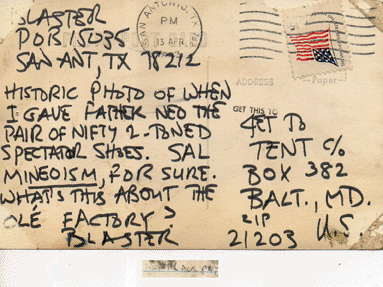 BLASTER
POB 15035
SAN ANT, TX 78212
HISTORIC PHOTO OF WHEN
I GAVE FATHER NEO THE
PAIR OF NIFTY 2-TONED
SPECTATOR SHOES. SAL
MINEOISM, FOR SURE.
WHAT'S THIS ABOUT THE
OLÉ FACTORY?
BLASTER
SAN ANTONIO, TX
PM
13 APR
ADDRESS
GET THIS TO
GET TO
TENT C/O
BOX 382
BALT., MD.
ZIP
21203 U.S.